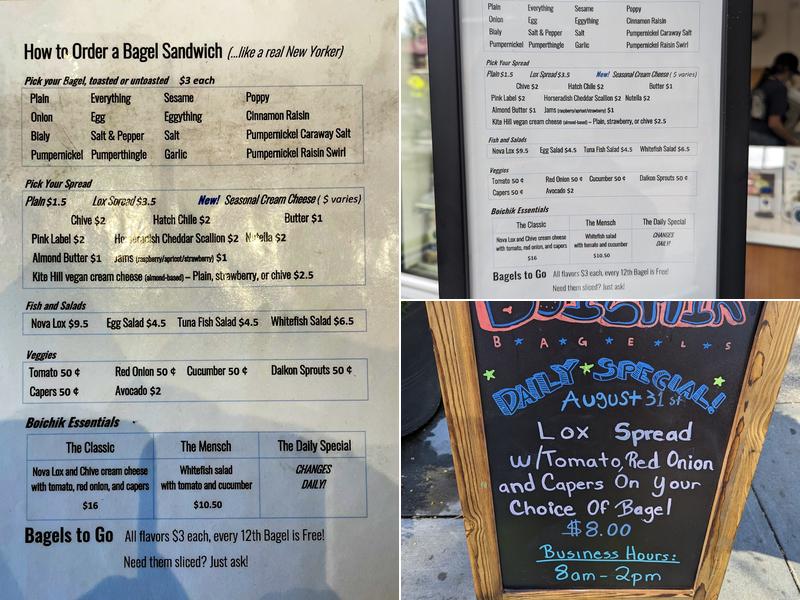 How to Order a Bagel Sandwich (...like a real New Yorker)
Pick your Bagel, toasted or untoasted $3 each
Plain Everything Sesame Poppy
Onion Egg Eggything Cinnamon Raisin
Bialy Salt & Pepper Salt Pumpernickel Caraway Salt
Pumpernickel Pumperthingle Garlic Pumpernickel Raisin Swirl
Pick Your Spread
Plain $1.5 Lox Spread $3.5 New! Seasonal Cream Cheese ( $ varies)
Chive $2 Hatch Chile $2 Butter $1
Pink Label $2 Horseradish Cheddar Scallion $2 Nutella $2
Almond Butter $1 Jams (raspberry/apricot/strawberry) $1
Kite Hill vegan cream cheese (almond-based) – Plain, strawberry, or chive $2.5
Fish and Salads
Nova Lox $9.5 Egg Salad $4.5 Tuna Fish Salad $4.5 Whitefish Salad $6.5
Veggies
Tomato 50 ¢ Red Onion 50 ¢ Cucumber 50 ¢ Daikon Sprouts 50 ¢
Capers 50 ¢ Avocado $2
Boichik Essentials
The Classic The Mensch The Daily Special
Nova Lox and Chive cream cheese Whitefish salad CHANGES
with tomato, red onion, and capers with tomato and cucumber DAILY!
$16 $10.50
Bagels to Go All flavors $3 each, every 12th Bagel is Free!
Need them sliced? Just ask!
Plain Everything Sesame Poppy
Onion Egg Eggything Cinnamon Raisin
Bialy Salt & Pepper Salt Pumpernickel Caraway Salt
Pumpernickel Pumperthingle Garlic Pumpernickel Raisin Swirl
Pick Your Spread
Plain $1.5 Lox Spread $3.5 New! Seasonal Cream Cheese ( $ varies)
Chive $2 Hatch Chile $2 Butter $1
Pink Label $2 Horseradish Cheddar Scallion $2 Nutella $2
Almond Butter $1 Jams (raspberry/apricot/strawberry) $1
Kite Hill vegan cream cheese (almond-based) – Plain, strawberry, or chive $2.5
Fish and Salads
Nova Lox $9.5 Egg Salad $4.5 Tuna Fish Salad $4.5 Whitefish Salad $6.5
Veggies
Tomato 50 ¢ Red Onion 50 ¢ Cucumber 50 ¢ Daikon Sprouts 50 ¢
Capers 50 ¢ Avocado $2
Boichik Essentials
The Classic The Mensch The Daily Special
Nova Lox and Chive cream cheese Whitefish salad CHANGES
with tomato, red onion, and capers with tomato and cucumber DAILY!
$16 $10.50
Bagels to Go All flavors $3 each, every 12th Bagel is Free!
Need them sliced? Just ask!
BOICHIK
BAGELS
DAILY SPECIAL!
August 31st
Lox Spread
w/Tomato, Red Onion
and Capers On Your
Choice Of Bagel
$8.00
Business Hours:
8am - 2pm